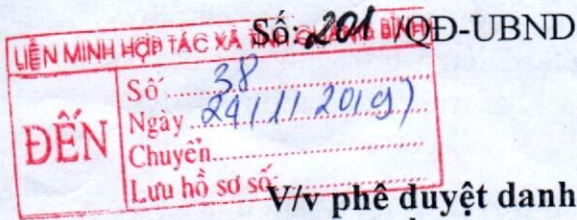 Số: 201 /QĐ-UBND
LIÊN MINH HỢP TÁC XÃ TỈNH QUẢNG BÌNH
ĐẾN
Số ........ 38
Ngày ... 24/1/2019
Chuyển...........
Lưu hồ sơ số:
V/v phê duyệt danh